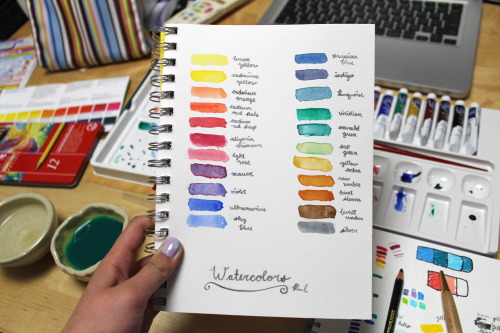 lemon
yellow
cadmium
yellow
cadmium
orange
cadmium
red pale
cadmium
red deep
alizarin
crimson
light
rose
mauve
violet
ultramarine
sky
blue
prussian
blue
indigo
turquoise
viridian
emerald
green
sap
green
yellow
ochre
raw
umber
burnt
sienna
burnt
umber
silver
Watercolors
12